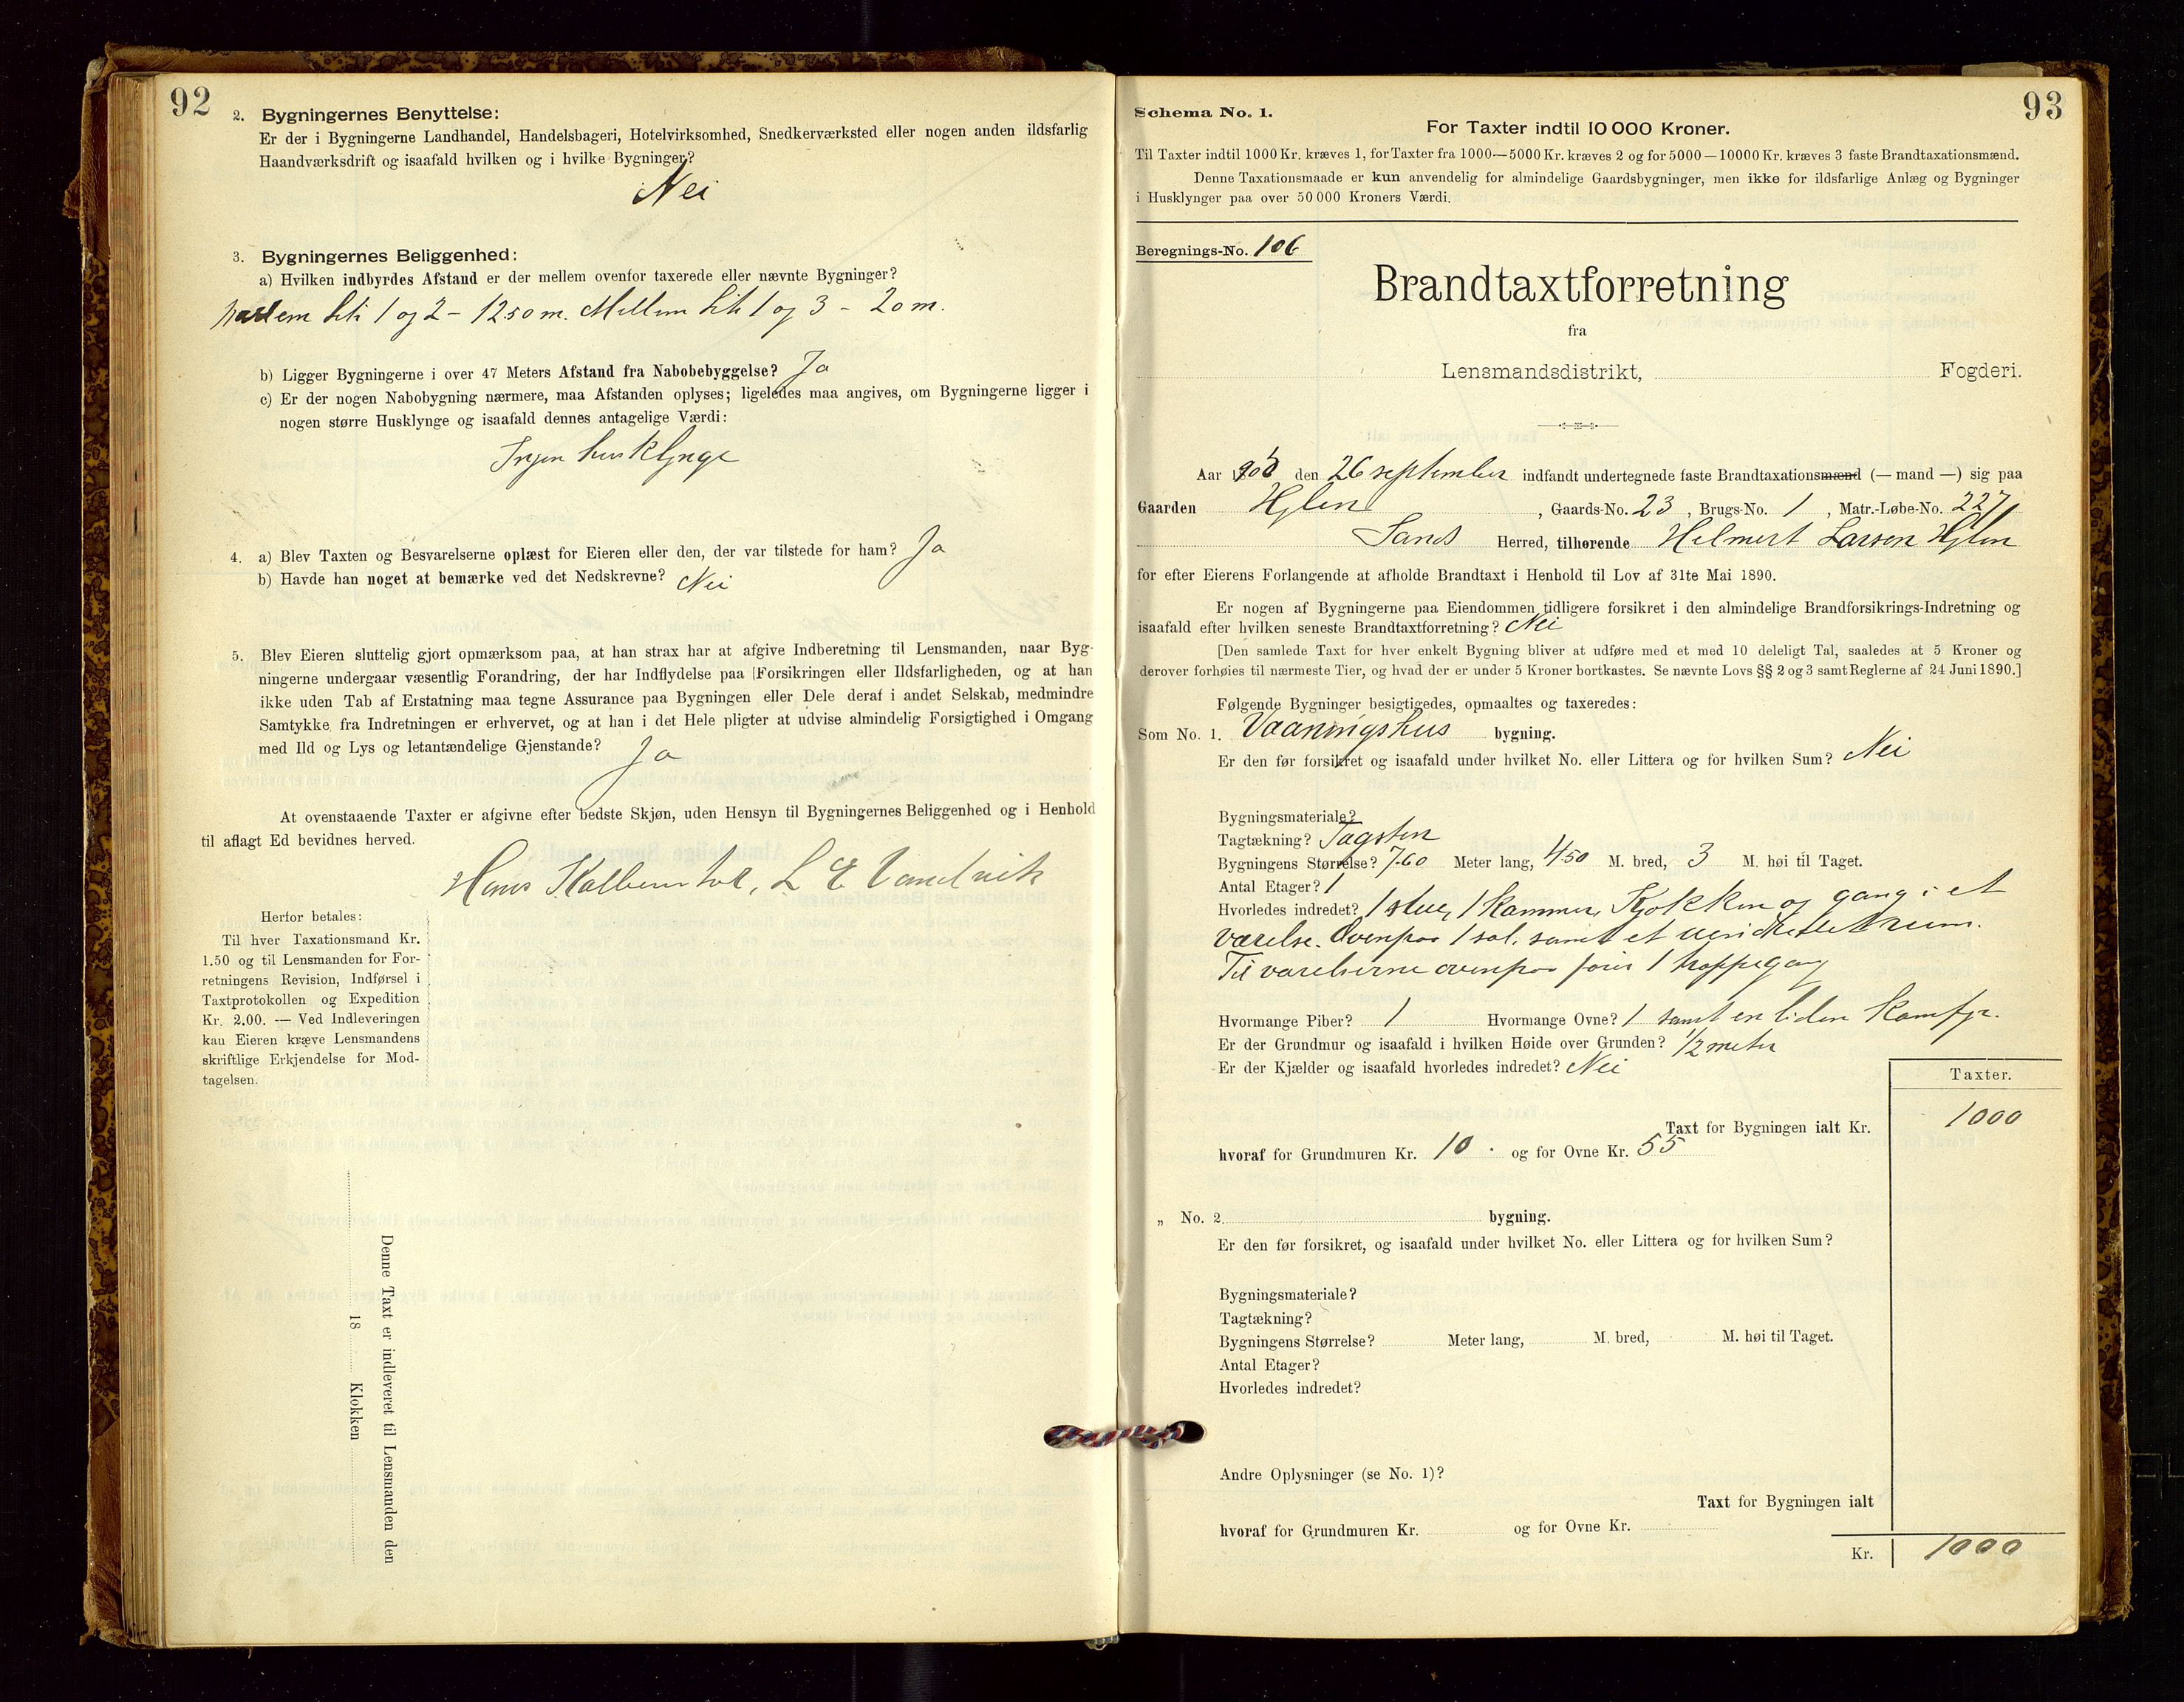 92
2. Bygningernes Benyttelse:
Er der i Bygningerne Landhandel, Handelsbageri, Hotelvirksomhed, Snedkerværksted eller nogen anden ildsfarlig
Haandværksdrift og isaafald hvilken og i hvilke Bygninger?
Nei
3. Bygningernes Beliggenhed:
a) Hvilken indbyrdes Afstand er der mellem ovenfor taxerede eller nævnte Bygninger?
Mellem Lit 1 og 2 - 12.50 m. Mellem Lit 1 og 3 - 20 m.
b) Ligger Bygningerne i over 47 Meters Afstand fra Nabobebyggelse? Ja
c) Er der nogen Nabobygning nærmere, maa Afstanden oplyses; ligeledes maa angives, om Bygningerne ligger i
nogen større Husklynge og isaafald dennes antagelige Værdi:
Ingen husklynge
4. a) Blev Taxten og Besvarelserne oplæst for Eieren eller den, der var tilstede for ham? Ja
b) Havde han noget at bemærke ved det Nedskrevne? Nei
5. Blev Eieren sluttelig gjort opmærksom paa, at han strax har at afgive Indberetning til Lensmanden, naar Byg-
ningerne undergaar væsentlig Forandring, der har Indflydelse paa Forsikringen eller Ildsfarligheden, og at han
ikke uden Tab af Erstatning maa tegne Assurance paa Bygningen eller Dele deraf i andet Selskab, medmindre
Samtykke fra Indretningen er erhvervet, og at han i det Hele pligter at udvise almindelig Forsigtighed i Omgang
med Ild og Lys og letantændelige Gjenstande? Ja
At ovenstaaende Taxter er afgivne efter bedste Skjøn, uden Hensyn til Bygningernes Beliggenhed og i Henhold
til aflagt Ed bevidnes herved.
Hans Kalbemtvet, L E Vandvik
Herfor betales:
Til hver Taxationsmand Kr.
1.50 og til Lensmanden for For-
retningens Revision, Indførsel i
Taxtprotokollen og Expedition
Kr. 2.00. — Ved Indleveringen
kan Eieren kræve Lensmandens
skriftlige Erkjendelse for Mod-
tagelsen.
Denne Taxt er indleveret til Lensmanden den
18 Klokken
93
Schema No. 1.
For Taxter indtil 10 000 Kroner.
Til Taxter indtil 1000 Kr. kræves 1, for Taxter fra 1000—5000 Kr. kræves 2 og for 5000—10000 Kr. kræves 3 faste Brandtaxationsmænd.
Denne Taxationsmaade er kun anvendelig for almindelige Gaardsbygninger, men ikke for ildsfarlige Anlæg og Bygninger
i Husklynger paa over 50 000 Kroners Værdi.
Beregnings-No. 106
Brandtaxtforretning
fra
Lensmandsdistrikt, Fogderi.
Aar den 26 september indfandt undertegnede faste Brandtaxationsmænd (— mand —) sig paa
Gaarden Hylen, Gaards-No. 23, Brugs-No. 1, Matr.-Løbe-No. 227
Sand Herred, tilhørende Helmert Larsen Hylen
for efter Eierens Forlangende at afholde Brandtaxt i Henhold til Lov af 31te Mai 1890.
Er nogen af Bygningerne paa Eiendommen tidligere forsikret i den almindelige Brandforsikrings-Indretning og
isaafald efter hvilken seneste Brandtaxtforretning? Nei
[Den samlede Taxt for hver enkelt Bygning bliver at udføre med et med 10 deleligt Tal, saaledes at 5 Kroner og
derover forhøies til nærmeste Tier, og hvad der er under 5 Kroner bortkastes. Se nævnte Lovs §§ 2 og 3 samt Reglerne af 24 Juni 1890.]
Følgende Bygninger besigtigedes, opmaaltes og taxeredes:
Som No. 1. Vaaningshus bygning.
Er den før forsikret og isaafald under hvilket No. eller Littera og for hvilken Sum? Nei
Bygningsmateriale?
Tagtækning? Tagsten
Bygningens Størrelse? 7.60 Meter lang, 4.50 M. bred, 3 M. høi til Taget.
Antal Etager? 1
Hvorledes indredet? 1 stue, 1 kammer, Kjøkken og gang i et
værelse. Ovenpaa 1 sal. samt et uindredet rum.
Til værelserne ovenpaa fører 1 trappegang
Hvormange Piber? 1 Hvormange Ovne? 1 samt en liden Komfyr.
Er der Grundmur og isaafald i hvilken Høide over Grunden? 1/2 meter
Er der Kjælder og isaafald hvorledes indredet? Nei
Taxter.
Taxt for Bygningen ialt Kr. 1000
hvoraf for Grundmuren Kr. 10 . og for Ovne Kr. 55
„ No. 2 bygning.
Er den før forsikret, og isaafald under hvilket No. eller Littera og for hvilken Sum?
Bygningsmateriale?
Tagtækning?
Bygningens Størrelse? Meter lang, M. bred, M. høi til Taget.
Antal Etager?
Hvorledes indredet?
Andre Oplysninger (se No. 1)?
Taxt for Bygningen ialt
hvoraf for Grundmuren Kr. og for Ovne Kr.
Kr. 1000